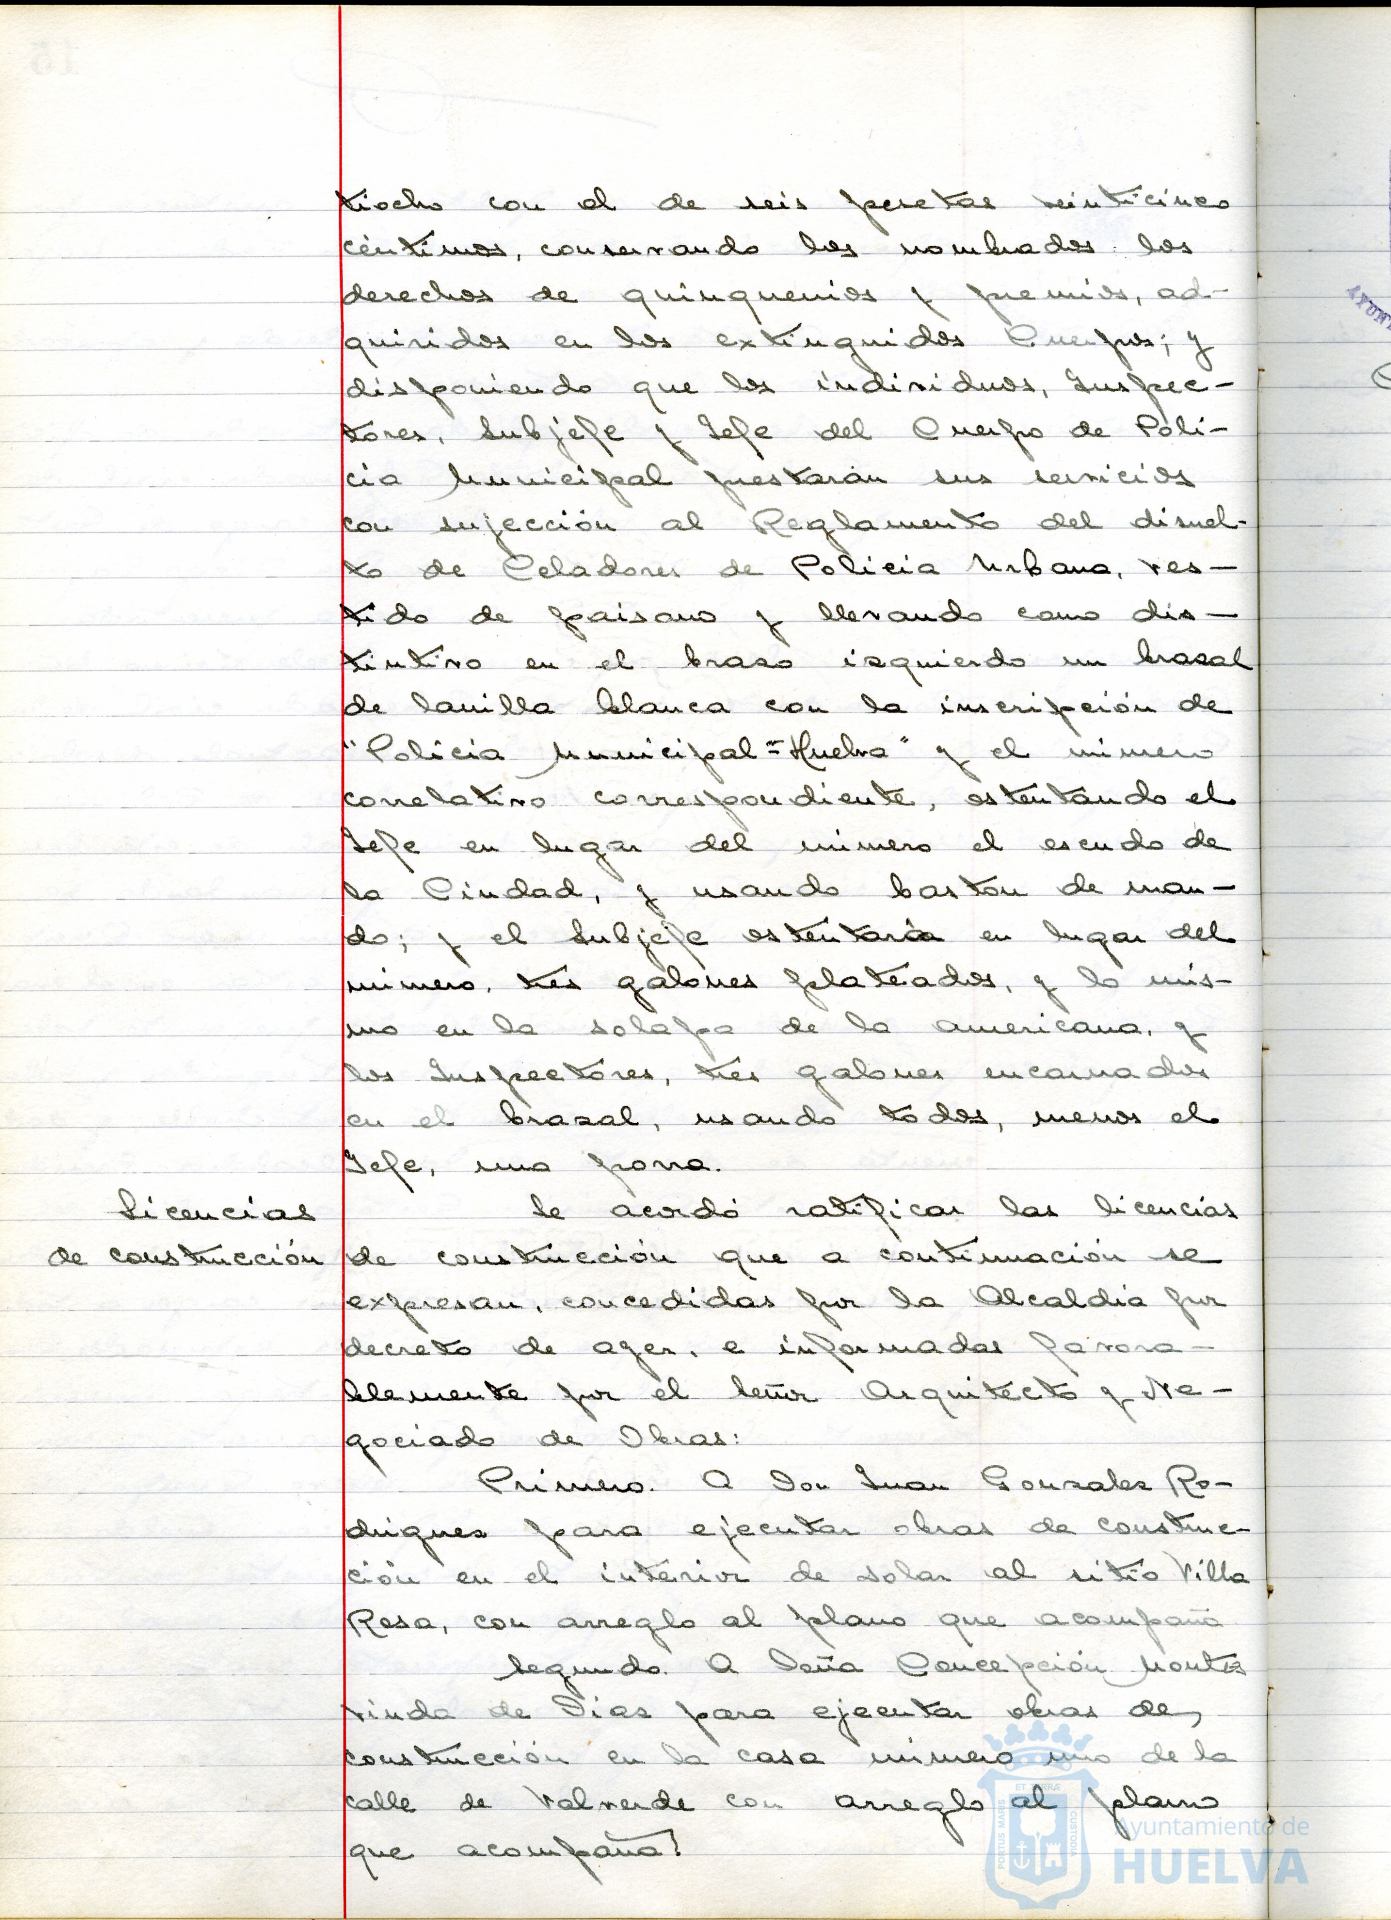 tiocho con el de seis pesetas veinticinco
céntimos, conservando los nombrados los
derechos de quinquenios y premios, ad-
quiridos en los extinguidos Cuerpos; y
disponiendo que los individuos, Inspec-
tores, Subjefe y Jefe del Cuerpo de Poli-
cia Municipal prestarán sus servicios
con sujección al Reglamento del disuel-
to de Celadores de Policia Urbana, ves-
tido de paisano y llevando como dis-
tintivo en el braso izquierdo un brazal
de lanilla blanca con la inscripción de
"Policia Municipal=Huelva" y el número
correlativo correspondiente, ostentando el
Jefe en lugar del número el escudo de
la Ciudad, y usando bastón de man-
do; y el Subjefe ostentará en lugar del
número, tres galones plateados, y lo mis-
mo en la solapa de la americana, y
los Inspectores, tres galones encarnados
en el brazal, usando todos, menos el
Jefe, una porra.
Licencias
de construcción
Se acordó ratificar las licencias
de construcción que a continuación se
expresan, concedidas por la Alcaldia por
decreto de ayer, e informadas favora-
blemente por el Señor Arquitecto y Ne-
gociado de Obras:
Primero. A Don Juan Gonzalez Ro-
driguez para ejecutar obras de construc-
ción en el interior de solar al sitio Villa
Rosa, con arreglo al plano que acompaña
Segundo. A Doña Concepción Montes
viuda de Dias para ejecutar obras de
construcción en la casa número uno de la
calle de Valverde con arreglo al plano
que acompaña.
PORTUS MARIS ET TERRÆ CUSTODIA
Ayuntamiento de
HUELVA